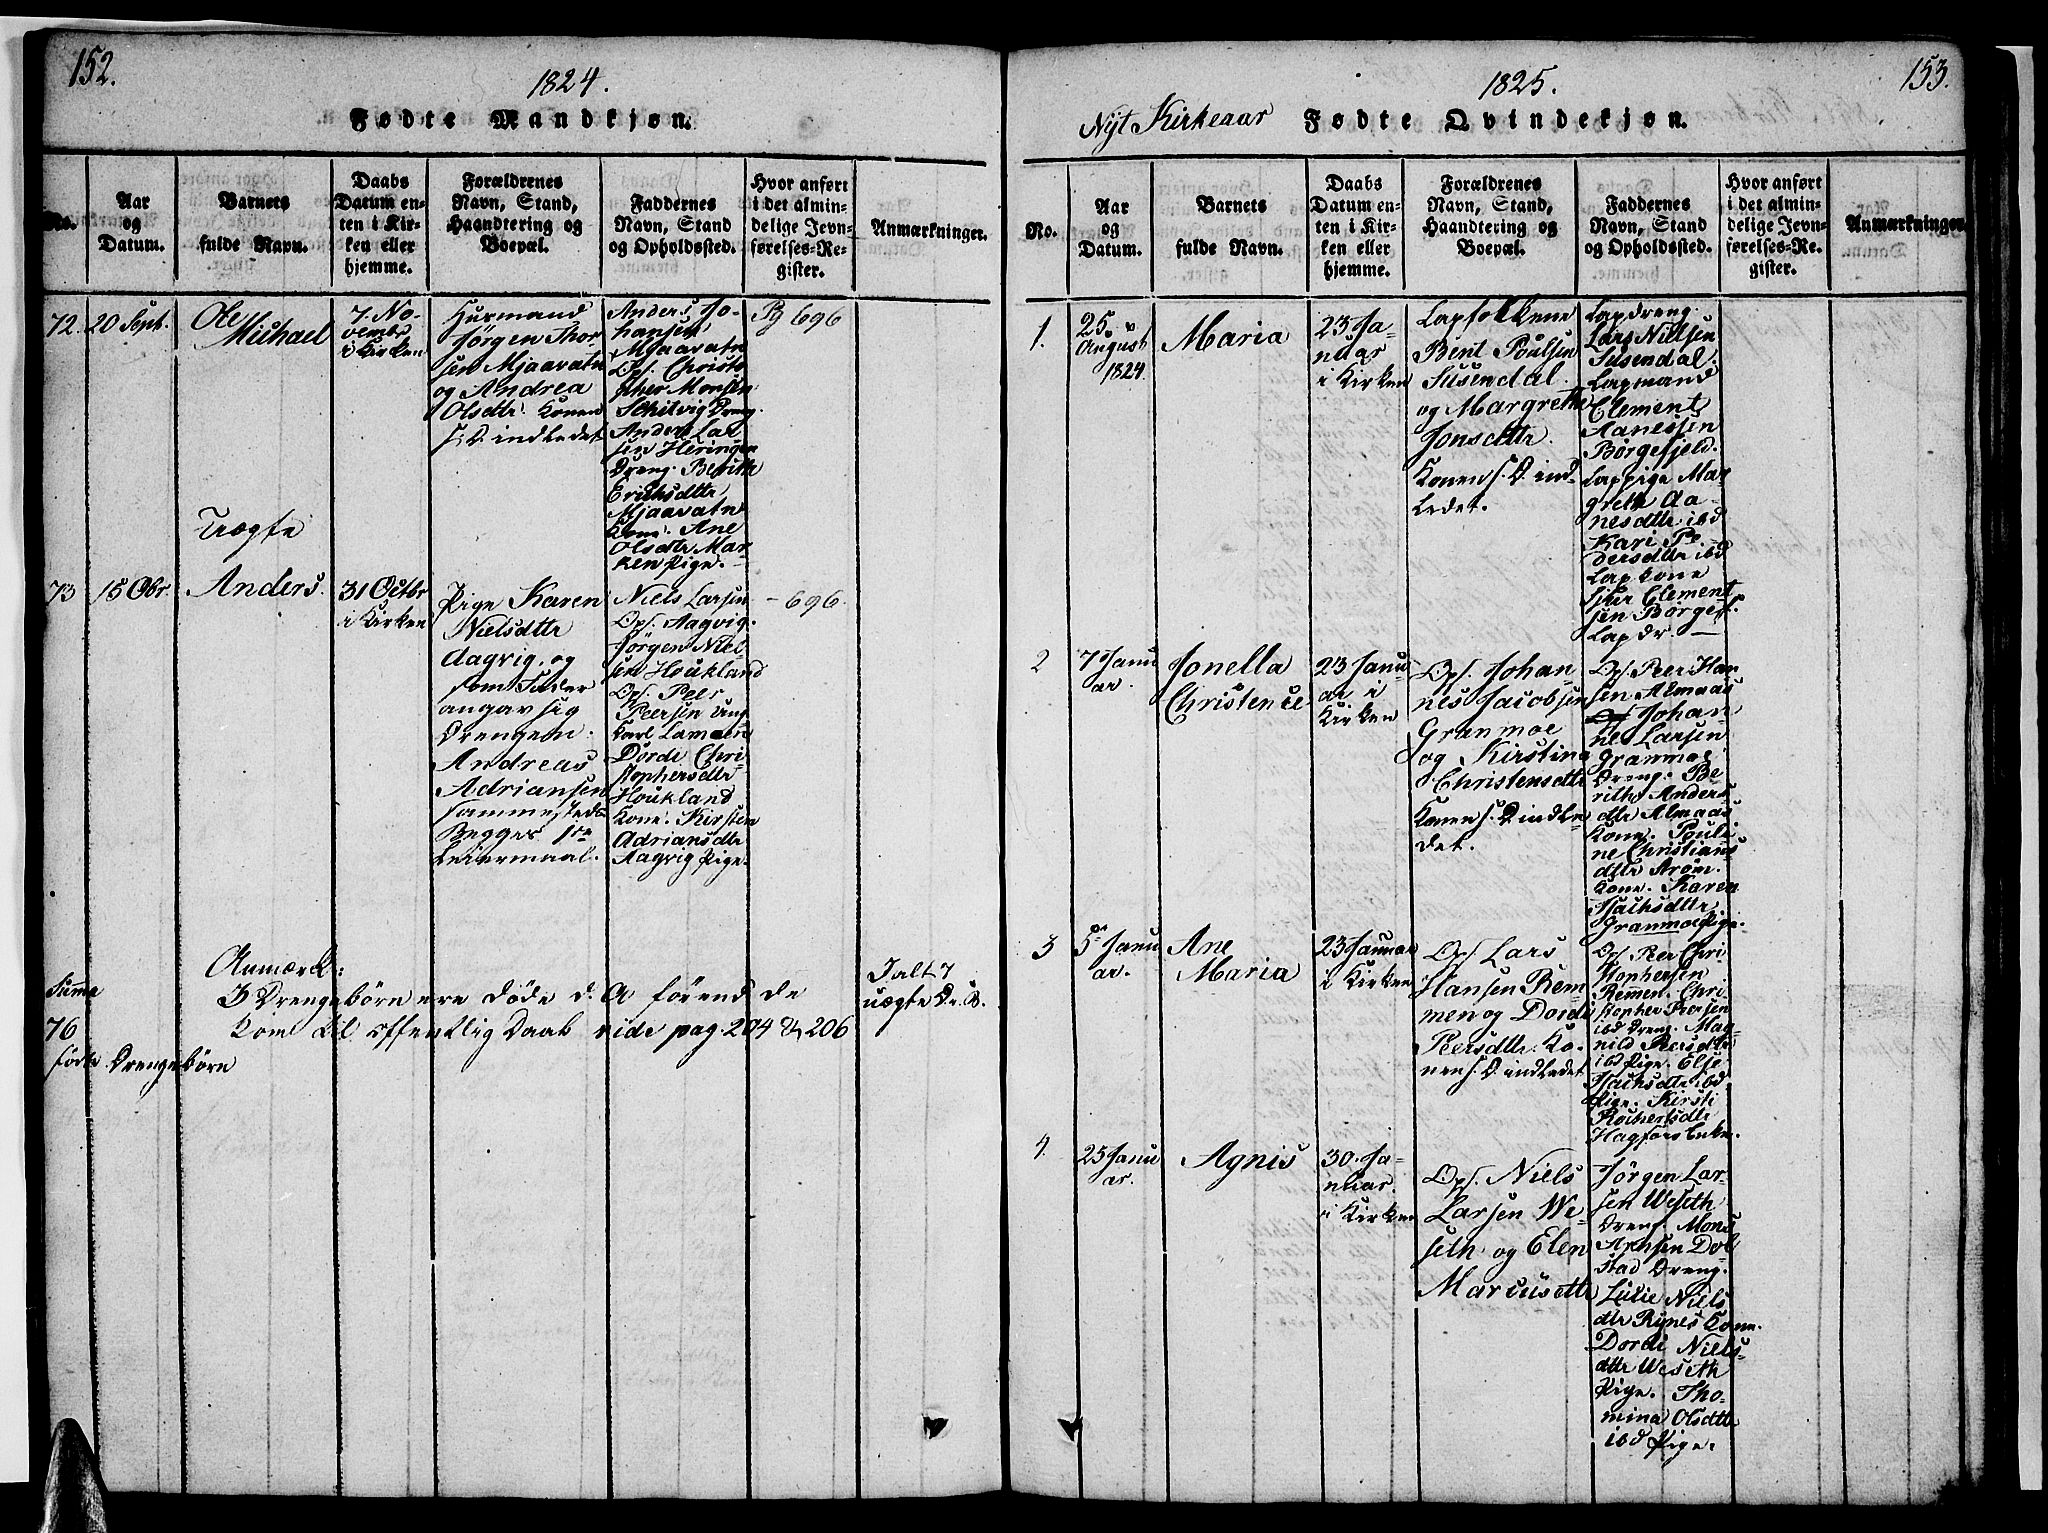 152.
1824.
Fødte Mandkjøn.
No.
Aar
og
Datum.
Barnets
fulde Navn.
Daabs
Datum en-
ten i Kir-
ken eller
hjemme.
Forældrenes
Navn, Stand,
Haandtering og
Boepæl.
Faddernes
Navn, Stand
og Opholdssted.
Hvor anført
i det almin-
delige Jevn-
førelses-Re-
gister.
Anmærkninger.
72.
20 Sept.
Ole
Michael
7 No-
vembr
i Kirken
Huusmand
Jørgen Thor
sen Mjaavatn
og Andrea
Olsdtr. Konen
S. D. indledet
Anders Jo-
hansen
Mjaavatn
Ops. Christo
pher Monsen
Schitvig Dreng.
Anders Lar
sen Heringen
Dreng. Berith
Erichsdtr
Mjaavatn
Kone. Ane
Olsdtr Mar-
ken Pige.
Pg 696
Uægte
73
15 Obr.
Anders.
31 Octbr
i Kirken
Pige Karen
Nielsdtr
Aagvig. og
som Fader
angav sig
Drengen.
Andreas
Adriansen
sammesteds
Begges 1te
Leiermaal.
Niels Larsen
Ops. Aagvig.
Jørgen Niel-
sen Houkland
Ops. Peer
Peersen Ung
Karl Lamoen
Dordi Chri-
stophersdtr
Houkland
Kone. Kirsten
Adriansdtr
Aagvig Pige.
- 696.
Anmærk:
3 Drengebørn ere døde d. A førend de
kom til offentlig Daab vide pag. 204 & 206
Summa
76
fødte Drengebørn
Ialt 7
uægte Dr. B.
153.
1825.
Nyt Kirkeaar Fødte Qvindekjøn.
No.
Aar
og
Datum.
Barnets
fulde Navn.
Daabs
Datum en-
ten i Kir-
ken eller
hjemme.
Forældrenes
Navn, Stand,
Haandtering og
Boepæl.
Faddernes
Navn, Stand
og Opholdssted.
Hvor anført
i det almin-
delige Jevn-
førelses-Re-
gister.
Anmærkninger.
1.
25
August
1824.
Maria
23 Ja-
nuar
i Kirken
Lapfolkene
Bent Poulsen
Susendal.
og Margrethe
Jonsdtr.
Konen S. D. ind-
ledet.
Lapdreng
Lars Nielsen
Susendal.
Lapmand
Clement
Aanessen
Børgefjeld.
Lappige Mar
greth Aa-
nesdtr ibd
Kari Pe-
dersdtr ibd
Lapkone
Sjur Clement
sen Børgef.
Lap dr
2
7 Janu
ar.
Jonella
Christence
23 Janu-
ar i
Kirken
Ops. Johan-
nes Jacobsen
Granmoe
og Kirstina
Christensdtr
Konen S. D. indle-
det.
Ops. Peer Han-
sen Almaas
Johan-
nes Larsen
Granmoe
Dreng. Be
rith Anders
dtr Almaas
Kone. Pouli
ne Christians
dtr Strøm.
Kone. Karen
Isachsdtr.
Granmoe Pige.
3
5te Janu
ar.
Ane
Maria
23 Januar
i Kirken
Ops. Lars
Hansen Rem-
men og Dordi
Peersdtr. Ko-
nen S. D. indledet
Ops. Peer Chri
stophersen
Remmen. Chri-
stopher Peersen
ibd Dreng. Mag-
nild Peersdtr
ibd Pige. Else
Isachsdtr ibd
Pige. Kirsti
Rouhertsdtr
Hagfors Enke.
4.
25 Janu
ar.
Agnis
30. Ja-
nuar.
i Kirken
Ops. Niels
Larsen We-
seth og Elen
Marcusdtr
Jørgen Lar-
sen Weseth
Dreng. Mons
Arnsen Dol
stad Dreng.
Lulie Niels
dtr Rynes Kone.
Dordi Niels-
dtr Weseth
Pige. Tho-
mina Olsdtr
ibd Pige.